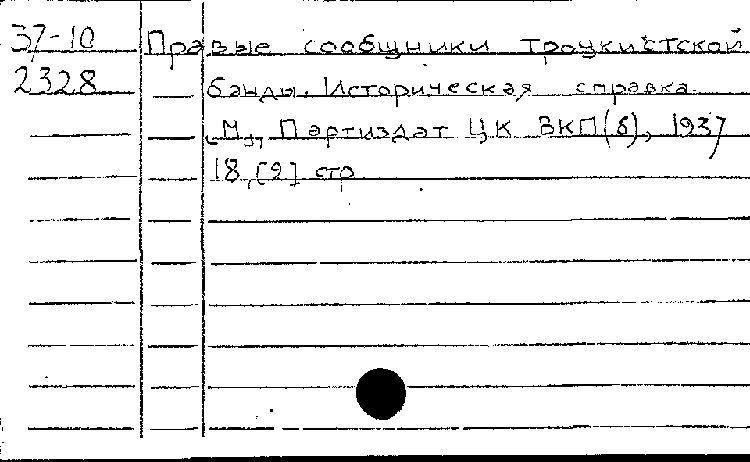 37-10 Правые сообщники троцкистской
2328 банды. Историческая справка.
[М.], Партиздат ЦК ВКП(б), 1937
18, [2] стр.